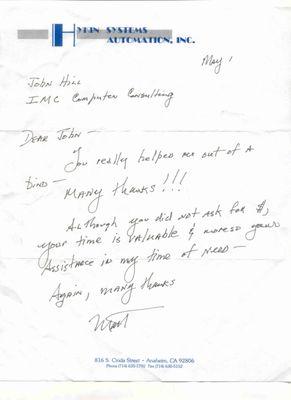 HYKIN SYSTEMS
AUTOMATION, INC.
May 1
John Hill
IMC Computer Consulting
Dear John -
You really helped me out of a
bind -
Many thanks!!!
Although you did not ask for $,
your time is valuable & moreso your
assistance in my time of need -
Again, many thanks
816 S. Onida Street - Anaheim, CA 92806